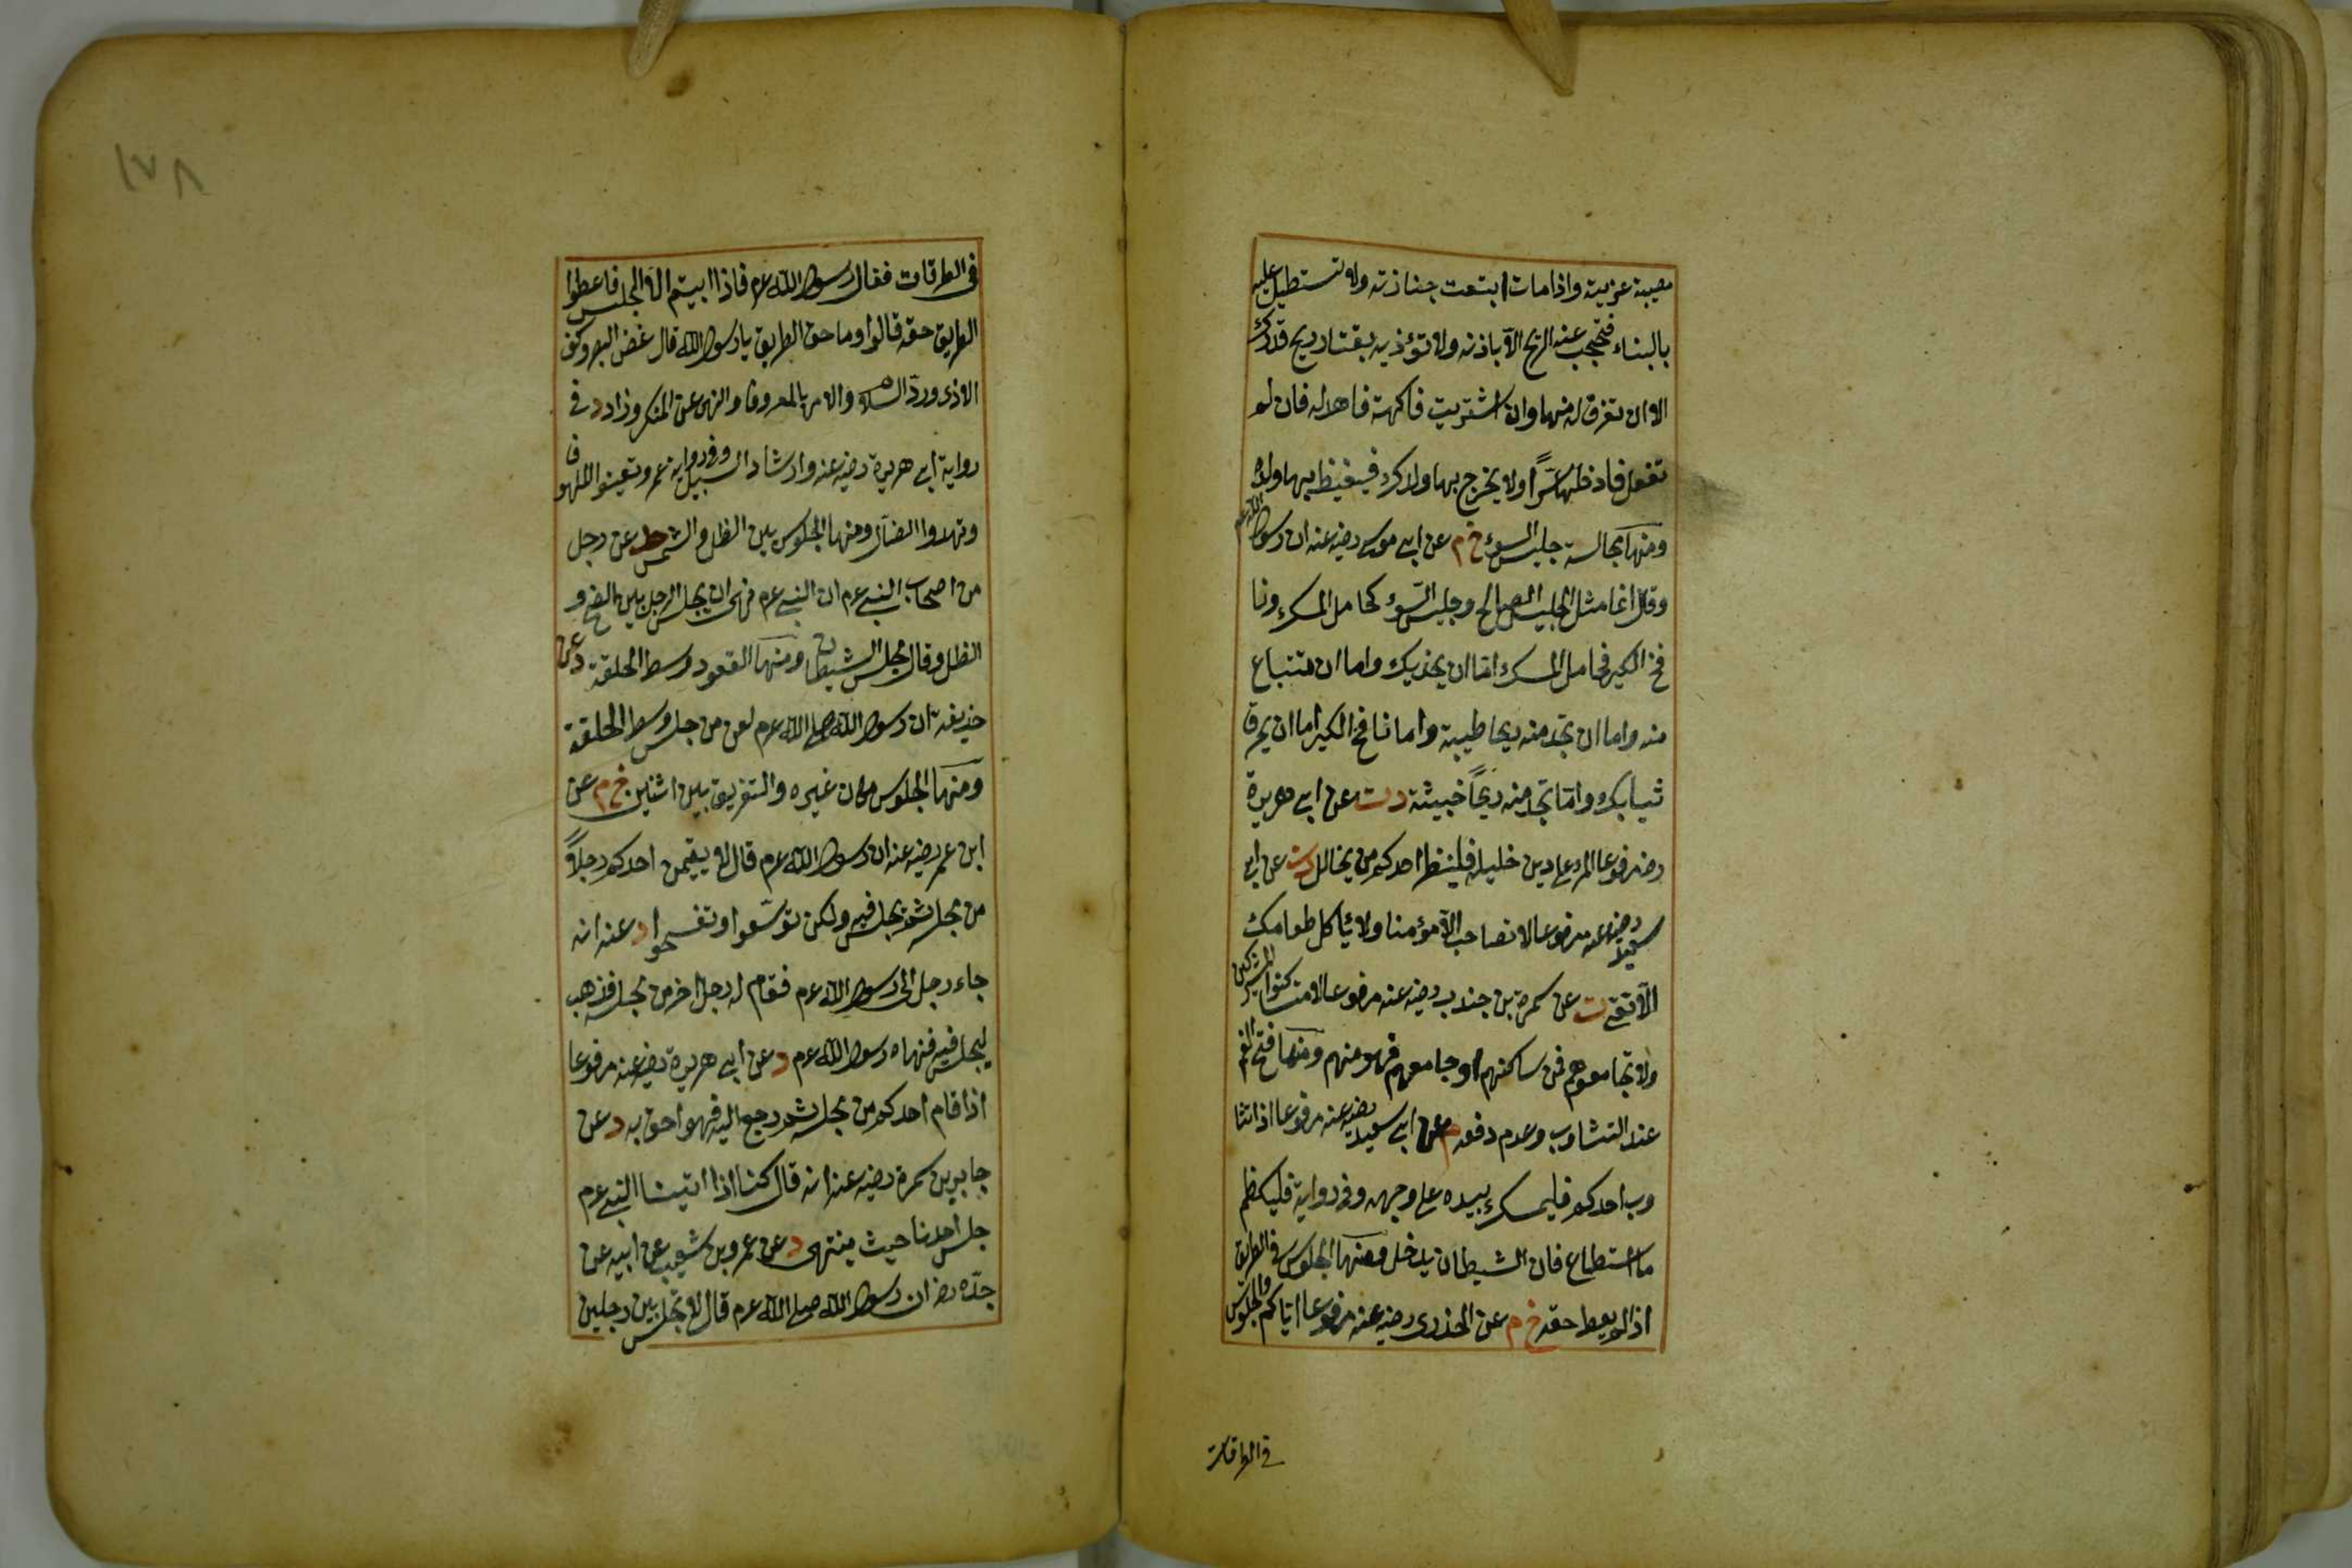 مصيبة عزيته واذا مات ابتعت جنازته ولا تستطيل عليه
بالبناء فتحجب عنه الريح الا باذنه ولا تؤذيه بقتار ريح قدرك
الا ان تغرف له منها وان اشتريت فاكهة فاهد له فان لم
تفعل فادخلها سرًا ولا يخرج بها ولدك فيغيظ بها ولده
ومنها مجالسة جليس السوء خ م عن ابى موسى رضيه عنه ان رسول الله عم
وقال انما مثل الجليس الصالح وجليس السوء كحامل المسك ونا
فخ الكير فحامل المسك اما ان يحذيك واما ان تبتاع
منه واما ان تجد منه ريحا طيبة واما نافخ الكير اما ان يحرق
ثيابك واما تجد منه ريحًا خبيثة د ت عن ابى هريرة
رضه مرفوعا المرء على دين خليله فلينظر احدكم من يخالل د ت عن ابى
سعيد رضيه عنه مرفوعا لا تصاحب الا مؤمنا ولا يأكل طعامك
الا تقى ت عن سمرة بن جندب رضيه عنه مرفوعا لا تساكنوا المشركين
ولا تجامعوهم فمن ساكنهم او جامعهم فهو منهم ومنها فتح الفم
عند التثاوب وعدم دفعه م عن ابى سعيد رضيه عنه مرفوعا اذا تثا
وب احدكم فليمسك بيده على وجهه وفى رواية فليكظم
ما استطاع فان الشيطان يدخل ومنها الجلوس فى الطريق
اذا لم يعط حقه خ م عن الخدرى رضيه عنه مرفوعا اياكم والجلوس
فى الطرقات
١٧٨
فى الطرقات فقال رسول الله عم فاذا ابيتم الا المجلس فاعطوا
الطريق حقه قالوا وما حق الطريق يا رسول الله قال غض البصر وكف
الاذى وردّ السلام والامر بالمعروف والنهى عن المنكر وزاد د فى
رواية ابى هريرة رضيه عنه وارشاد السبيل وفى رواية عمر وتعينوا الملهوف
وتهدوا الضال ومنها الجلوس بين الظل والشمس حد عن رجل
من اصحاب النبى عم ان النبى عم نهى ان يجلس الرجل بين الضح و
الظل وقال مجلس الشيطان ومنها القعود وسط الحلقة د عن
حذيفة ان رسول الله صلى الله عم لعن من جلس وسط الحلقة
ومنها الجلوس مكان غيره والتفريق بين اثنين خ م عن
ابن عمر رضيه عنه ان رسول الله عم قال لا يقيمن احدكم رجلاً
من مجلسه ثم يجلس فيه ولكن توسّعوا وتفسحوا د عنه انه
جاء رجل الى رسول الله عم فقام له رجل اخر من مجلسه فذهب
ليجلس فيه فنهاه رسول الله عم د عن ابى هريرة رضيه عنه مرفوعا
اذا قام احدكم من مجلسه ثم رجع اليه فهو احق به د عن
جابر بن سمرة رضيه عنه انه قال كنا اذا اتينا النبى عم
جلس احدنا حيث ينتهى د عن عمرو بن شعيب عن ابيه عن
جدّه رضه ان رسول الله صلى الله عم قال لا تجلس بين رجلين